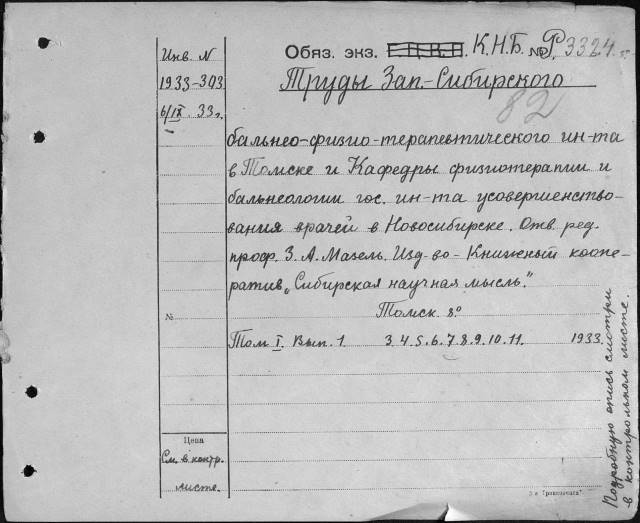 Инв. N
1933-393
6/IX. 33г.
Обяз. экз. К.Н.Б. № Р 3324
Труды Зап.-Сибирского
82
бальнео-физио-терапевтического ин-та
в Томске и Кафедры физиотерапии и
бальнеологии гос. ин-та усовершенство-
вания врачей в Новосибирске. Отв. ред.
проф. З. А. Мазель. Изд-во - Книжный коопе-
ратив „Сибирская научная мысль."
№
Томск 8°
Том I. Вып. 1 3. 4. 5. 6. 7. 8. 9. 10. 11. 1933.
Цена
См. в контр.
листе.
Подробную опись смотри
в контрольном листе.